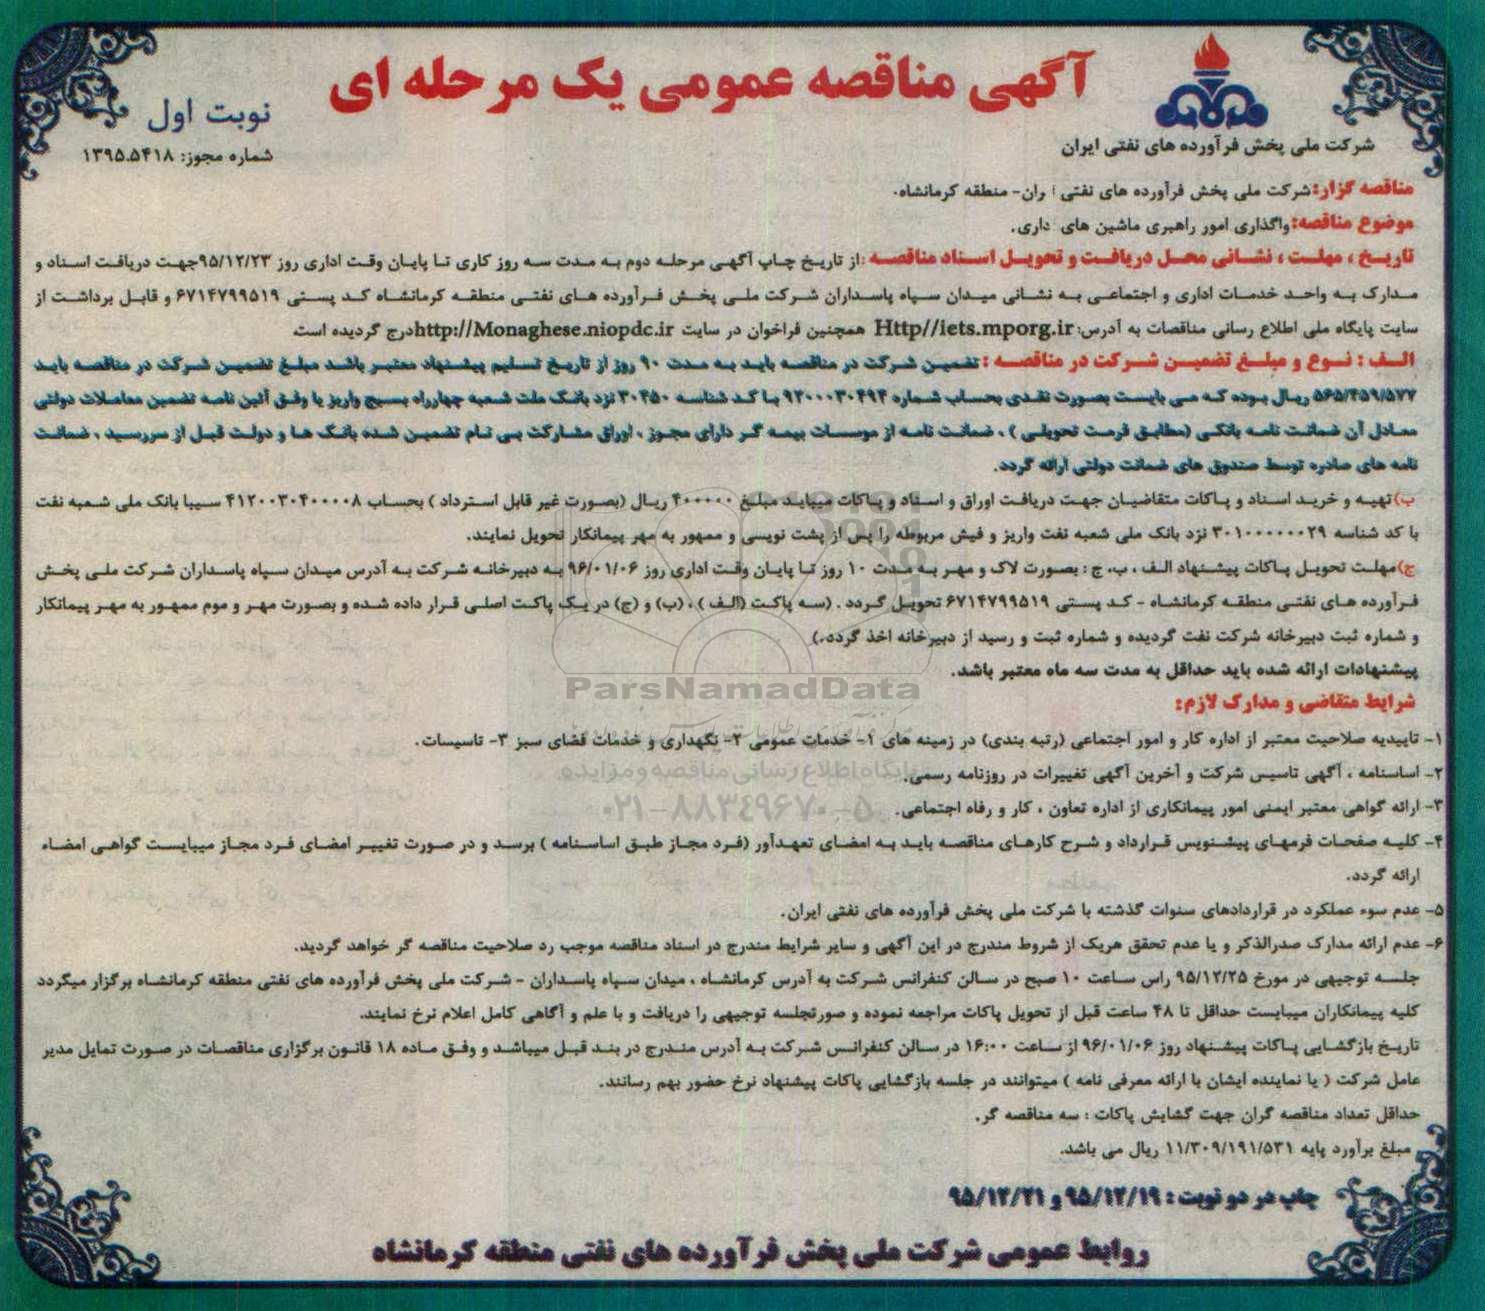 آگهی مناقصه عمومی یک مرحله ای
نوبت اول
شماره مجوز: ۱۳۹۵.۵۴۱۸
شرکت ملی پخش فرآورده های نفتی ایران
مناقصه گزار: شرکت ملی پخش فرآورده های نفتی ایران- منطقه کرمانشاه.
موضوع مناقصه: واگذاری امور راهبری ماشین های اداری.
تاریخ ، مهلت ، نشانی محل دریافت و تحویل اسناد مناقصه : از تاریخ چاپ آگهی مرحله دوم به مدت سه روز کاری تا پایان وقت اداری روز ۹۵/۱۲/۲۳جهت دریافت اسناد و
مدارک به واحد خدمات اداری و اجتماعی به نشانی میدان سپاه پاسداران شرکت ملی پخش فرآورده های نفتی منطقه کرمانشاه کد پستی ۶۷۱۴۷۹۹۵۱۹ و قابل برداشت از
سایت پایگاه ملی اطلاع رسانی مناقصات به آدرس: Http//iets.mporg.ir همچنین فراخوان در سایت http://Monaghese.niopdc.ir درج گردیده است.
الف : نوع و مبلغ تضمین شرکت در مناقصه : تضمین شرکت در مناقصه باید به مدت ۹۰ روز از تاریخ تسلیم پیشنهاد معتبر باشد مبلغ تضمین شرکت در مناقصه باید
۵۶۵/۴۵۹/۵۷۷ ریال بوده که می بایست بصورت نقدی بحساب شماره ۹۲۰۰۰۳۰۴۹۴ با کد شناسه ۳۰۴۵۰ نزد بانک ملت شعبه چهارراه بسیج واریز یا وفق آئین نامه تضمین معاملات دولتی
معادل آن ضمانت نامه بانکی (مطابق فرمت تحویلی ) ، ضمانت نامه از موسسات بیمه گر دارای مجوز ، اوراق مشارکت بی نام تضمین شده بانک ها و دولت قبل از سررسید ، ضمانت
نامه های صادره توسط صندوق های ضمانت دولتی ارائه گردد.
ب) تهیه و خرید اسناد و پاکات متقاضیان جهت دریافت اوراق و اسناد و پاکات میباید مبلغ ۴۰۰۰۰۰ ریال (بصورت غیر قابل استرداد ) بحساب ۴۱۲۰۰۳۰۴۰۰۰۰۸ سیبا بانک ملی شعبه نفت
با کد شناسه ۳۰۱۰۰۰۰۰۰۲۹ نزد بانک ملی شعبه نفت واریز و فیش مربوطه را پس از پشت نویسی و ممهور به مهر پیمانکار تحویل نمایند.
ج) مهلت تحویل پاکات پیشنهاد الف ، ب، ج : بصورت لاک و مهر به مدت ۱۰ روز تا پایان وقت اداری روز ۹۶/۰۱/۰۶ به دبیرخانه شرکت به آدرس میدان سپاه پاسداران شرکت ملی پخش
فرآورده های نفتی منطقه کرمانشاه - کد پستی ۶۷۱۴۷۹۹۵۱۹ تحویل گردد . (سه پاکت (الف ) ، (ب) و (ج) در یک پاکت اصلی قرار داده شده و بصورت مهر و موم ممهور به مهر پیمانکار
و شماره ثبت دبیرخانه شرکت نفت گردیده و شماره ثبت و رسید از دبیرخانه اخذ گردد.)
پیشنهادات ارائه شده باید حداقل به مدت سه ماه معتبر باشد.
ParsNamadData
شرایط متقاضی و مدارک لازم:
۱- تاییدیه صلاحیت معتبر از اداره کار و امور اجتماعی (رتبه بندی) در زمینه های ۱- خدمات عمومی ۲- نگهداری و خدمات فضای سبز ۳- تاسیسات.
۲- اساسنامه ، آگهی تاسیس شرکت و آخرین آگهی تغییرات در روزنامه رسمی.
پایگاه اطلاع رسانی مناقصه و مزایده
۳- ارائه گواهی معتبر ایمنی امور پیمانکاری از اداره تعاون ، کار و رفاه اجتماعی.
۰۲۱-۸۸۳۴۹۶۷۰-۵
۴- کلیه صفحات فرمهای پیشنویس قرارداد و شرح کارهای مناقصه باید به امضای تعهدآور (فرد مجاز طبق اساسنامه ) برسد و در صورت تغییر امضای فرد مجاز میبایست گواهی امضاء
ارائه گردد.
۵- عدم سوء عملکرد در قراردادهای سنوات گذشته با شرکت ملی پخش فرآورده های نفتی ایران.
۶- عدم ارائه مدارک صدرالذکر و یا عدم تحقق هریک از شروط مندرج در این آگهی و سایر شرایط مندرج در اسناد مناقصه موجب رد صلاحیت مناقصه گر خواهد گردید.
جلسه توجیهی در مورخ ۹۵/۱۲/۲۵ راس ساعت ۱۰ صبح در سالن کنفرانس شرکت به آدرس کرمانشاه ، میدان سپاه پاسداران - شرکت ملی پخش فرآورده های نفتی منطقه کرمانشاه برگزار میگردد
کلیه پیمانکاران میبایست حداقل تا ۴۸ ساعت قبل از تحویل پاکات مراجعه نموده و صورتجلسه توجیهی را دریافت و با علم و آگاهی کامل اعلام نرخ نمایند.
تاریخ بازگشایی پاکات پیشنهاد روز ۹۶/۰۱/۰۶ از ساعت ۱۶:۰۰ در سالن کنفرانس شرکت به آدرس مندرج در بند قبل میباشد و وفق ماده ۱۸ قانون برگزاری مناقصات در صورت تمایل مدیر
عامل شرکت ( یا نماینده ایشان با ارائه معرفی نامه ) میتوانند در جلسه بازگشایی پاکات پیشنهاد نرخ حضور بهم رسانند.
حداقل تعداد مناقصه گران جهت گشایش پاکات : سه مناقصه گر.
مبلغ برآورد پایه ۱۱/۳۰۹/۱۹۱/۵۳۱ ریال می باشد.
چاپ در دو نوبت : ۹۵/۱۲/۱۹ و ۹۵/۱۲/۲۱
روابط عمومی شرکت ملی پخش فرآورده های نفتی منطقه کرمانشاه